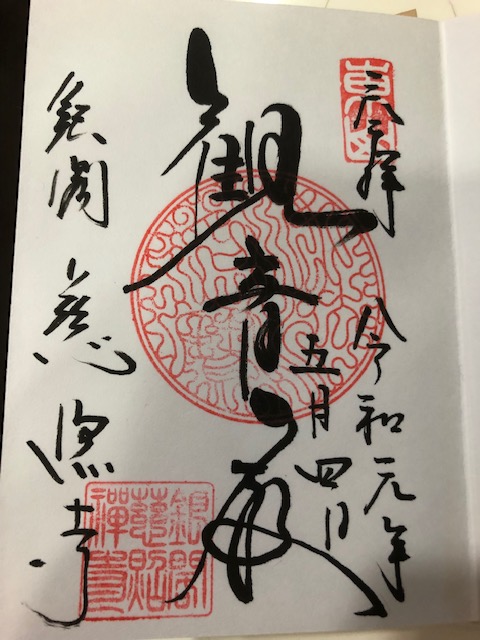 東山
奉拝
令和元年
五月四日
観音殿
銀閣 慈照寺
銀閣
慈照
禪寺